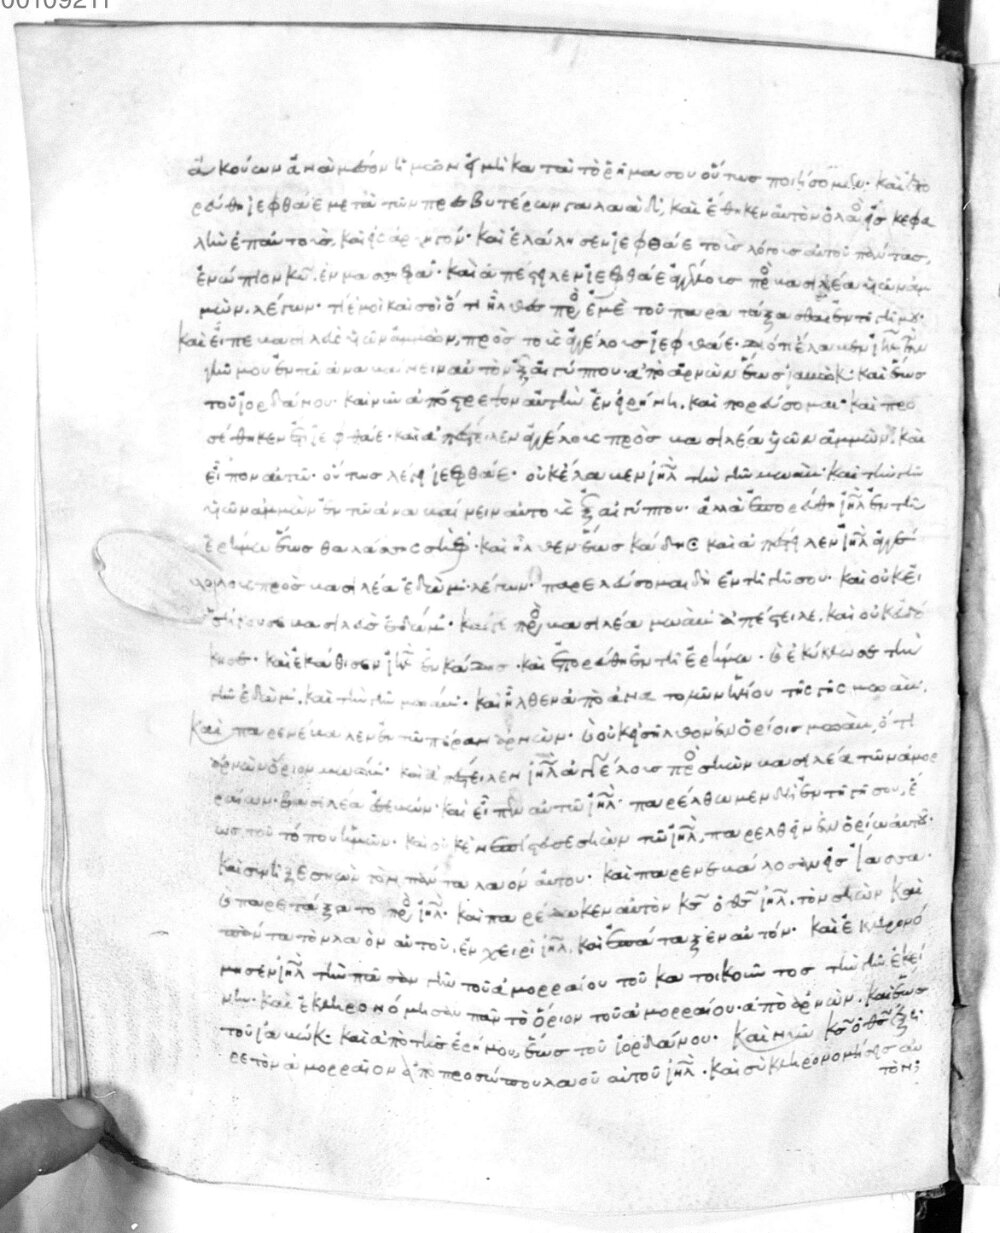 00109211
ἀκούων ἀναμέσον ἡμῶν εἰ μὴ κατὰ τὸ ῥῆμα σου οὕτως ποιήσομεν· καὶ ἐπο
ρεύθη ἰεφθάε μετὰ τῶν πρεσβυτέρων γαλαάδ, καὶ ἔθηκεν αὐτὸν ὁ λαὸς εἰς κεφα
λὴν ἐπ αὐτοὺς, καὶ εἰς ἀρχηγόν· καὶ ἐλάλησεν ἰεφθάε τοὺς λόγους αὐτοῦ πάντας,
ἐνώπιον κυ ἐν μασσηφά· καὶ ἀπέστειλεν ἰεφθάε ἀγγέλους πρὸς βασιλέα υἱῶν ἀμ
μών, λέγων· τί ἐμοὶ καὶ σοὶ ὅτι ἦλθες πρὸς ἐμὲ τοῦ παρατάξασθαι ἐν τῇ γῇ μου·
καὶ εἶπε βασιλεὺς υἱῶν ἀμμὼν, πρὸς τοὺς ἀγγέλους ἰεφθάε· διότι ἔλαβεν ιηλ τὴν
γῆν μου ἐν τῷ ἀναβαίνειν αὐτὸν ἐξ αἰγύπτου· ἀπὸ ἀρνὼν ἕως ἰαβώκ· καὶ ἕως
τοῦ ἰορδάνου· καὶ νῦν ἀπόστρεψον αὐτὴν ἐν εἰρήνῃ, καὶ πορεύσομαι· καὶ προ
σέθηκεν ἔτι ἰεφθάε· καὶ ἀπέστειλεν ἀγγέλους πρὸς βασιλέα υἱῶν ἀμμὼν, καὶ
εἶπον αὐτῷ· οὕτως λέγει ἰεφθάε· οὐκ ἔλαβεν ιηλ τὴν γῆν μωάβ· καὶ τὴν γῆν
υἱῶν ἀμμὼν ἐν τῷ ἀναβαίνειν αὐτοὺς ἐξ αἰγύπτου· ἀλλὰ ἐπορεύθη ιηλ ἐν τῇ
ἐρήμῳ ἕως θαλάσσης σίφ· καὶ ἦλθεν ἕως κάδης καὶ ἀπέστειλεν ιηλ ἀγγέ
λους πρὸς βασιλέα ἐδὼμ λέγων· παρελεύσομαι δὴ ἐν τῇ γῇ σου· καὶ οὐκ εἰ
σήκουσε βασιλεὺς ἐδώμ· καί γε πρὸς βασιλέα μωὰβ ἀπέστειλε, καὶ οὐκ εὐδό
κησε· καὶ ἐκάθισεν ιηλ ἐν κάδης· καὶ ἐπορεύθη ἐν τῇ ἐρήμῳ· καὶ ἐκύκλωσε τὴν
γῆν ἐδώμ, καὶ τὴν γῆν μωάβ· καὶ ἦλθεν ἀπὸ ἀνατολῶν ἡλίου τῆς γῆς μωάβ,
καὶ παρενέβαλεν ἐν τῷ πέραν ἀρνών· καὶ οὐκ εἰσῆλθον ἐν ὁρίοις μωάβ, ὅτι
ἀρνὼν ὅριον μωάβ· καὶ ἀπέστειλεν ιηλ ἀγγέλους πρὸς σηὼν βασιλέα τῶν ἀμορ
ραίων· βασιλέα ἐσεβών· καὶ εἶπεν αὐτῷ ιηλ· παρέλθωμεν δὴ ἐν τῇ γῇ σου, ἕ
ως τοῦ τόπου ἡμῶν· καὶ οὐκ ἐνεπίστευσε σηὼν τῷ ιηλ, παρελθεῖν ἐν ὁρίῳ αὐτοῦ·
καὶ συνῆξε σηὼν τὸν πάντα λαὸν αὐτοῦ· καὶ παρενεβάλοσαν εἰς ἰάσσα·
καὶ παρετάξατο πρὸς ιηλ· καὶ παρέδωκεν αὐτὸν κς ὁ θς ιηλ, τὸν σηὼν καὶ
πάντα τὸν λαὸν αὐτοῦ, ἐν χειρὶ ιηλ, καὶ ἐπάταξεν αὐτόν· καὶ ἐκληρονό
μησεν ιηλ τὴν πᾶσαν γῆν τοῦ ἀμορραίου τοῦ κατοικοῦντος τὴν γῆν ἐκεί
νην· καὶ ἐκληρονόμησαν πᾶν τὸ ὅριον τοῦ ἀμορραίου· ἀπὸ ἀρνὼν, καὶ ἕως
τοῦ ἰαβώκ· καὶ ἀπὸ τῆς ἐρήμου, ἕως τοῦ ἰορδάνου· καὶ νῦν κς ὁ θς ἐξῇ
ρε τὸν ἀμορραῖον ἀπὸ προσώπου λαοῦ αὐτοῦ ιηλ· καὶ σὺ κληρονομήσεις αὐ
τόν;